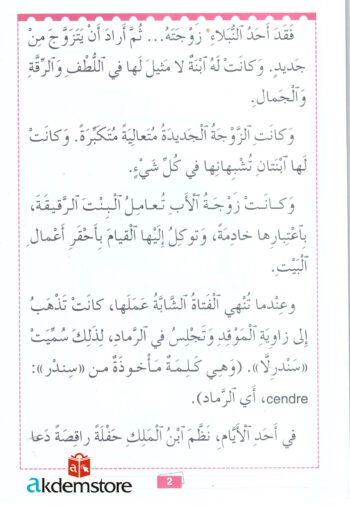 فَقَدَ أَحَدُ النُّبَلاءِ* زَوْجَتَهُ... ثُمَّ أَرادَ أَنْ يَتَزَوَّجَ مِنْ
جَديدٍ. وَكانَتْ لَهُ ٱبْنَةٌ لا مَثيلَ لَها في ٱللُّطْفِ وَٱلرِّقَّةِ
وَٱلْجَمالِ.
وَكانَتِ ٱلزَّوْجَةُ ٱلْجَديدَةُ مُتَعالِيَةً مُتَكَبِّرَةً. وَكانَتْ
لَها ٱبْنَتانِ تُشْبِهانِها في كُلِّ شَيْءٍ.
وَكانَتْ زَوْجَةُ ٱلْأَبِ تُعامِلُ ٱلْبِنْتَ ٱلرَّقيقَةَ،
بِٱعْتِبارِها خادِمَةً، وَتوكِلُ إِلَيْها ٱلْقِيامَ بِأَحْقَرِ أَعْمالِ
ٱلْبَيْتِ.
وعِنْدما تُنْهي ٱلْفَتاةُ ٱلشَّابَّةُ عَمَلَها، كانَتْ تَذْهَبُ
إِلى زاوِيَةِ ٱلْمَوْقِدِ وَتَجْلِسُ في ٱلرَّمادِ، لِذٰلِكَ سُمِّيَتْ
«سَنْدرِلَّا». (وَهِيَ كَلِمَةٌ مَأْخوذَةٌ مِن «سِنِدْر»:
cendre، أَيِ ٱلرَّماد).
في أَحَدِ ٱلْأَيَّامِ، نَظَّمَ ٱبْنُ ٱلْمَلِكِ حَفْلَةً راقِصَةً دَعا
2
akdemstore